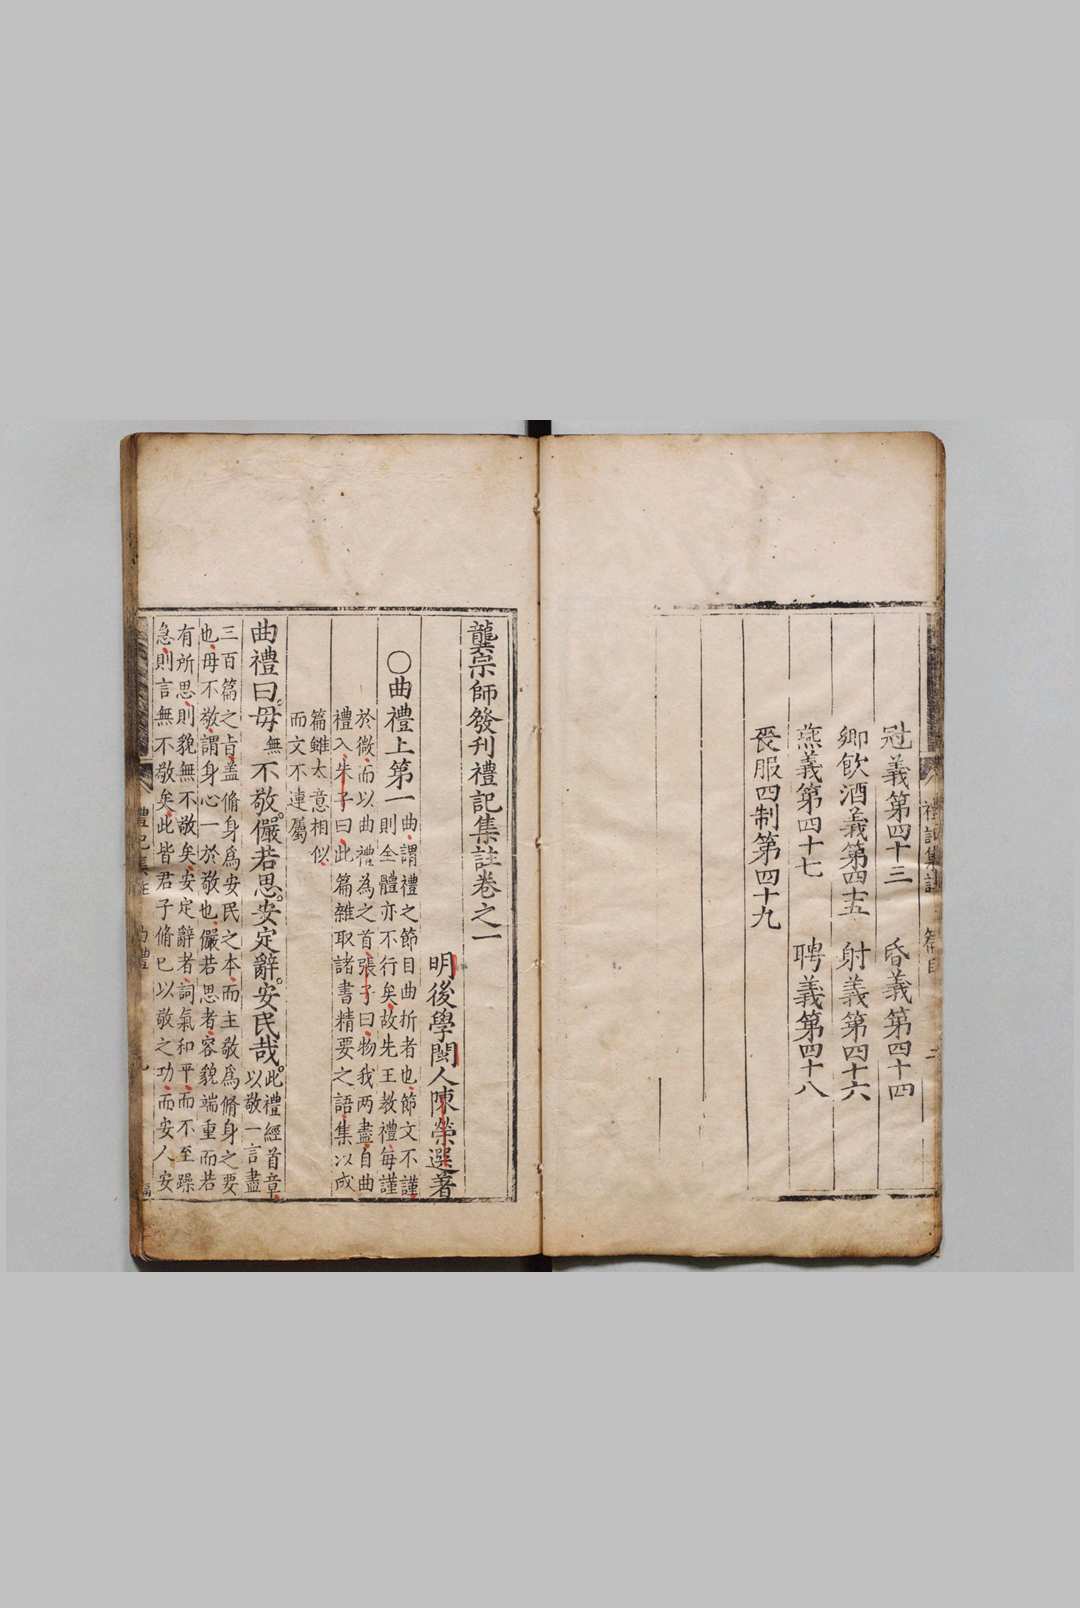 冠義第四十三 昏義第四十四
鄉飲酒義第四十五 射義第四十六
燕義第四十七 聘義第四十八
喪服四制第四十九
龔宗師發刊禮記集註卷之一
明後學閩人陳榮選著
○曲禮上第一
曲謂禮之節目曲折者也節文不謹
則全體亦不行矣故先王教禮每謹
於微而以曲禮為之首張子曰物我两盡自曲
禮入朱子曰此篇雜取諸書精要之語集以成
篇雖大意相似
而文不連屬
曲禮曰毋無不敬儼若思安定辭安民哉此禮經首章
以敬一言盡
三百篇之旨盖脩身為安民之本而主敬為脩身之要
也毋不敬謂身心一於敬也儼若思者容貌端重而若
有所思則貌無不敬矣安定辭者詞氣和平而不至躁
急則言無不敬矣此皆君子脩己以敬之功而安人安